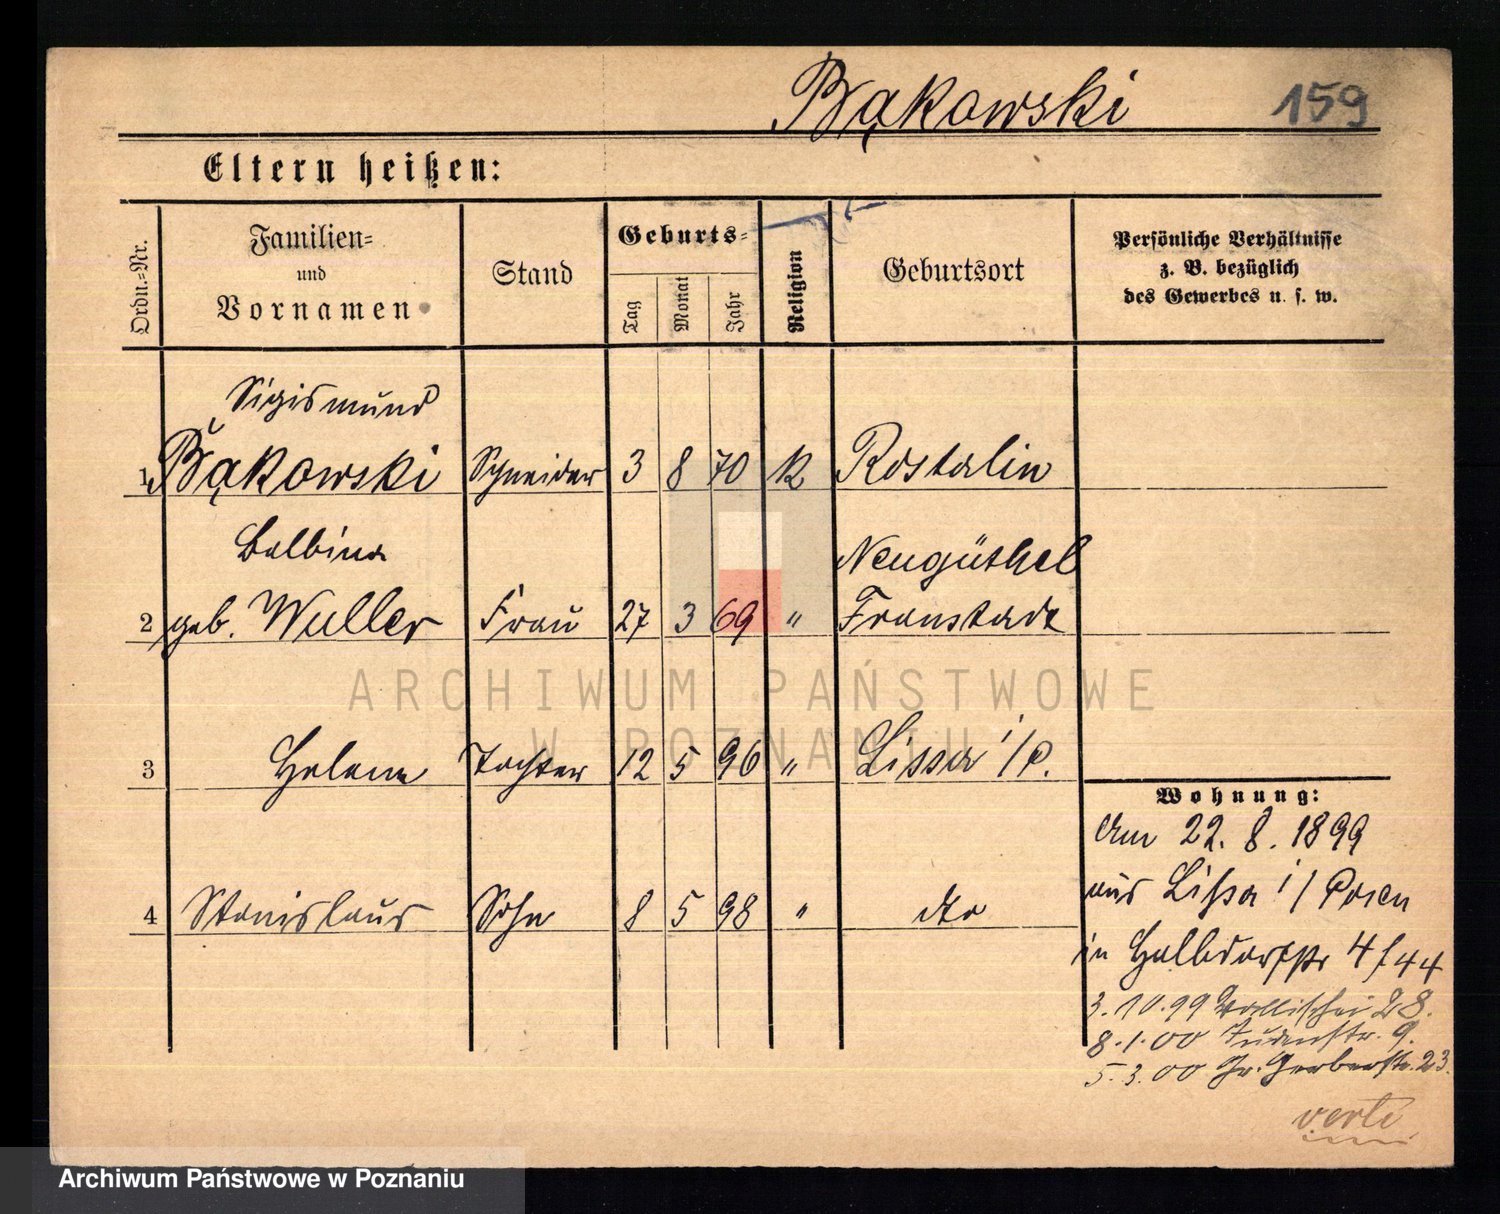 Bąkowski 159
Eltern heißen:
Ordn.-Nr.
Familien-
und
Vornamen
Stand
Geburts-
Tag
Monat
Jahr
Religion
Geburtsort
Persönliche Verhältnisse
z. B. bezüglich
des Gewerbes u. s. w.
Sigismund
1 Bąkowski Schneider 3 8 70 k Rostalin
Balbina Neugüthel
2 geb. Wuller Frau 27 3 69 " Fraustadt
ARCHIWUM PAŃSTWOWE
W POZNANIU
3 Helene Tochter 12 5 96 " Lissa i/P.
Wohnung:
Am 22. 8. 1899
aus Lissa i/Posen
4 Stanislaus Sohn 8 5 98 " dto
in Halbdorfstr 4 f 44
3. 10. 99 Wallischei 28.
8. 1. 00 Judenstr. 9.
5. 3. 00 Gr. Gerberstr. 23.
verte
Archiwum Państwowe w Poznaniu